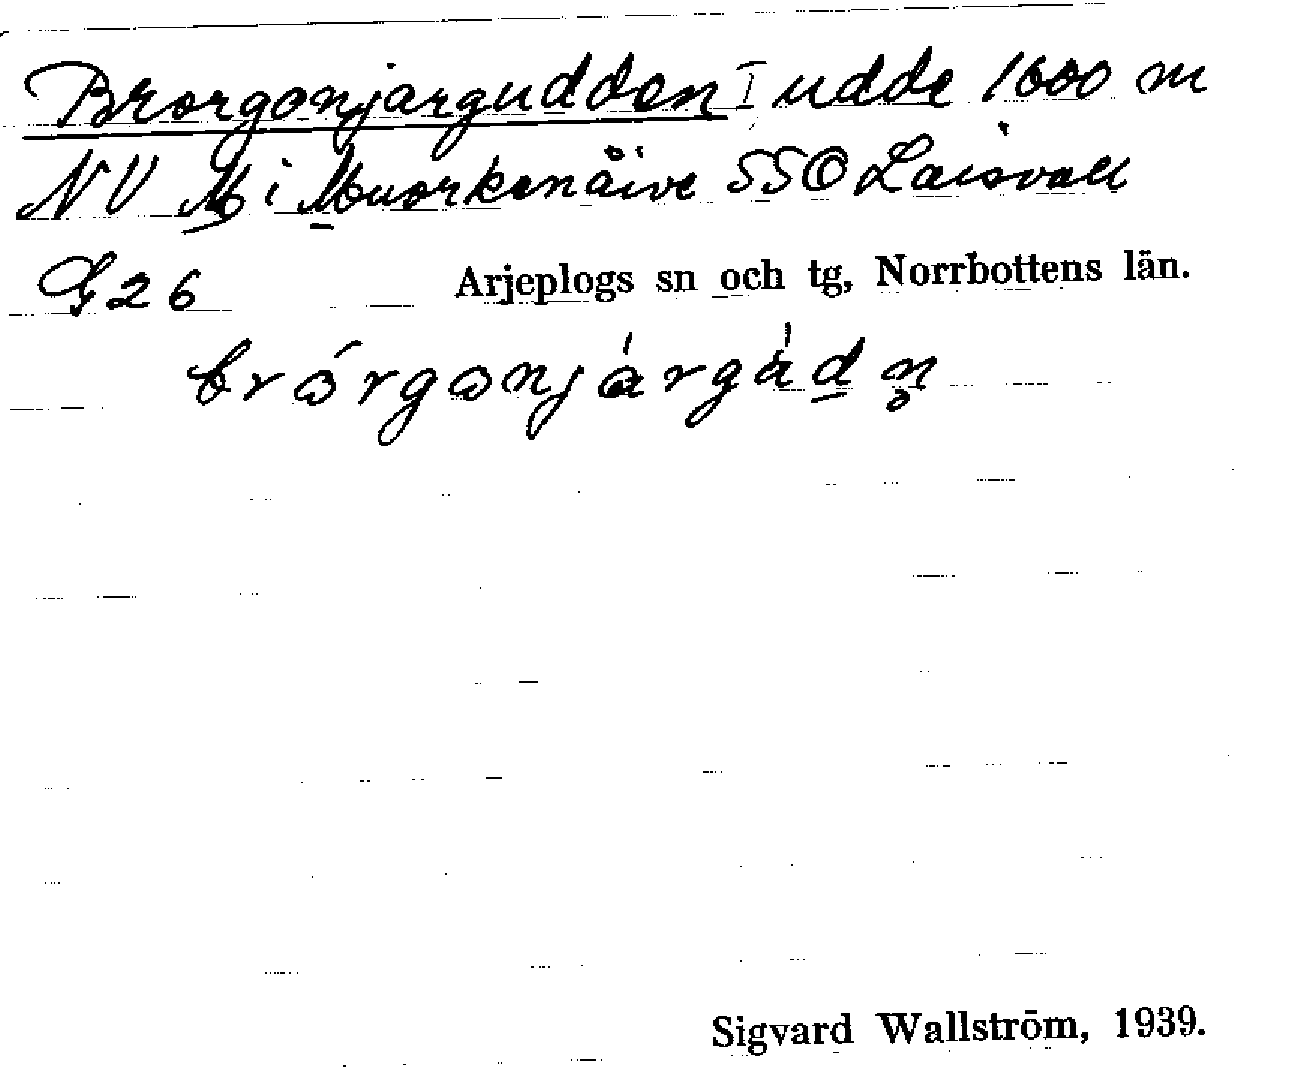 Brorgonjargudden I udde 1600 m
NV M i Muorkenäive SSO Laisvall
G26 Arjeplogs sn och tg, Norrbottens län.
brórgonjárgàdn̥
Sigvard Wallström, 1939.